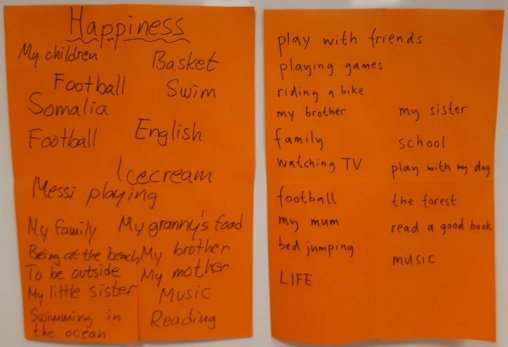 Happiness
My children
Basket
Football
Swim
Somalia
Football
English
Icecream
Messi playing
My family
My granny's food
Being at the beach
My brother
To be outside
My mother
My little sister
Music
Swimming in
the ocean
Reading
play with friends
playing games
riding a bike
my brother
my sister
family
school
watching TV
play with my dog
football
the forest
my mum
read a good book
bed jumping
music
LIFE